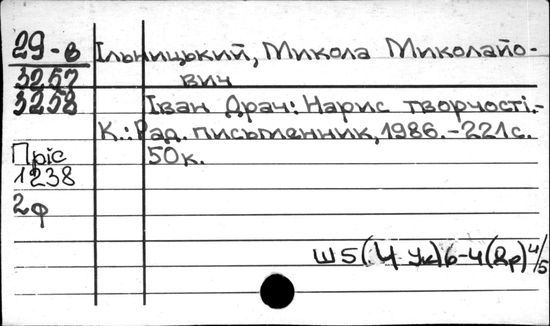 29-в
3257
3258
Пріс
1238
2ф
Ільницький, Микола Миколайо-
вич
Іван Драч: Нарис творчості.-
К.: Рад. письменник, 1986.-221с.
50к.
Ш5(4Ук)6-4(Др) 4/5